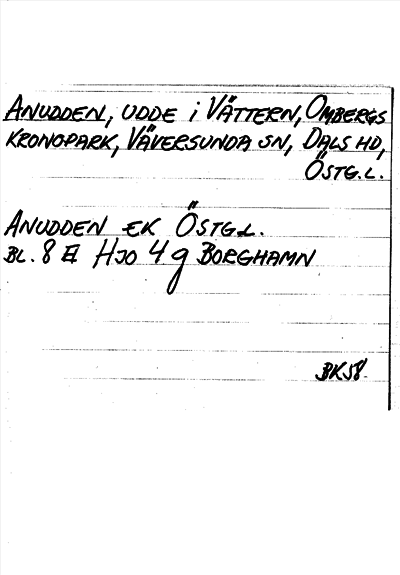 ANUDDEN, UDDE i VÄTTERN, OMBERGS
KRONOPARK, VÄVERSUNDA SN, DALS HD,
ÖSTG.L.
ANUDDEN EK ÖSTG.L.
BL. 8 HJO 4 g BORGHAMN
BK58